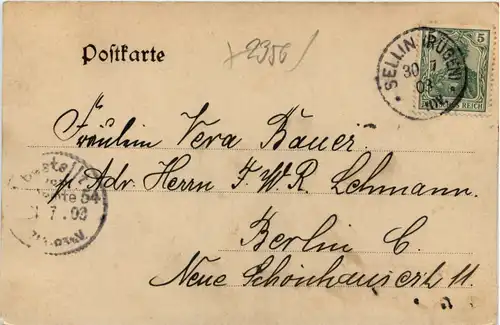 Postkarte
2956
SELLIN (RÜGEN)
30 7
03
5
REICH
Fräulein Vera Bauer.
p. Adr. Herrn F. W. R. Lehmann.
Berlin C.
Neue Schönhauserstr. 11.
Bestellt
54
7.03